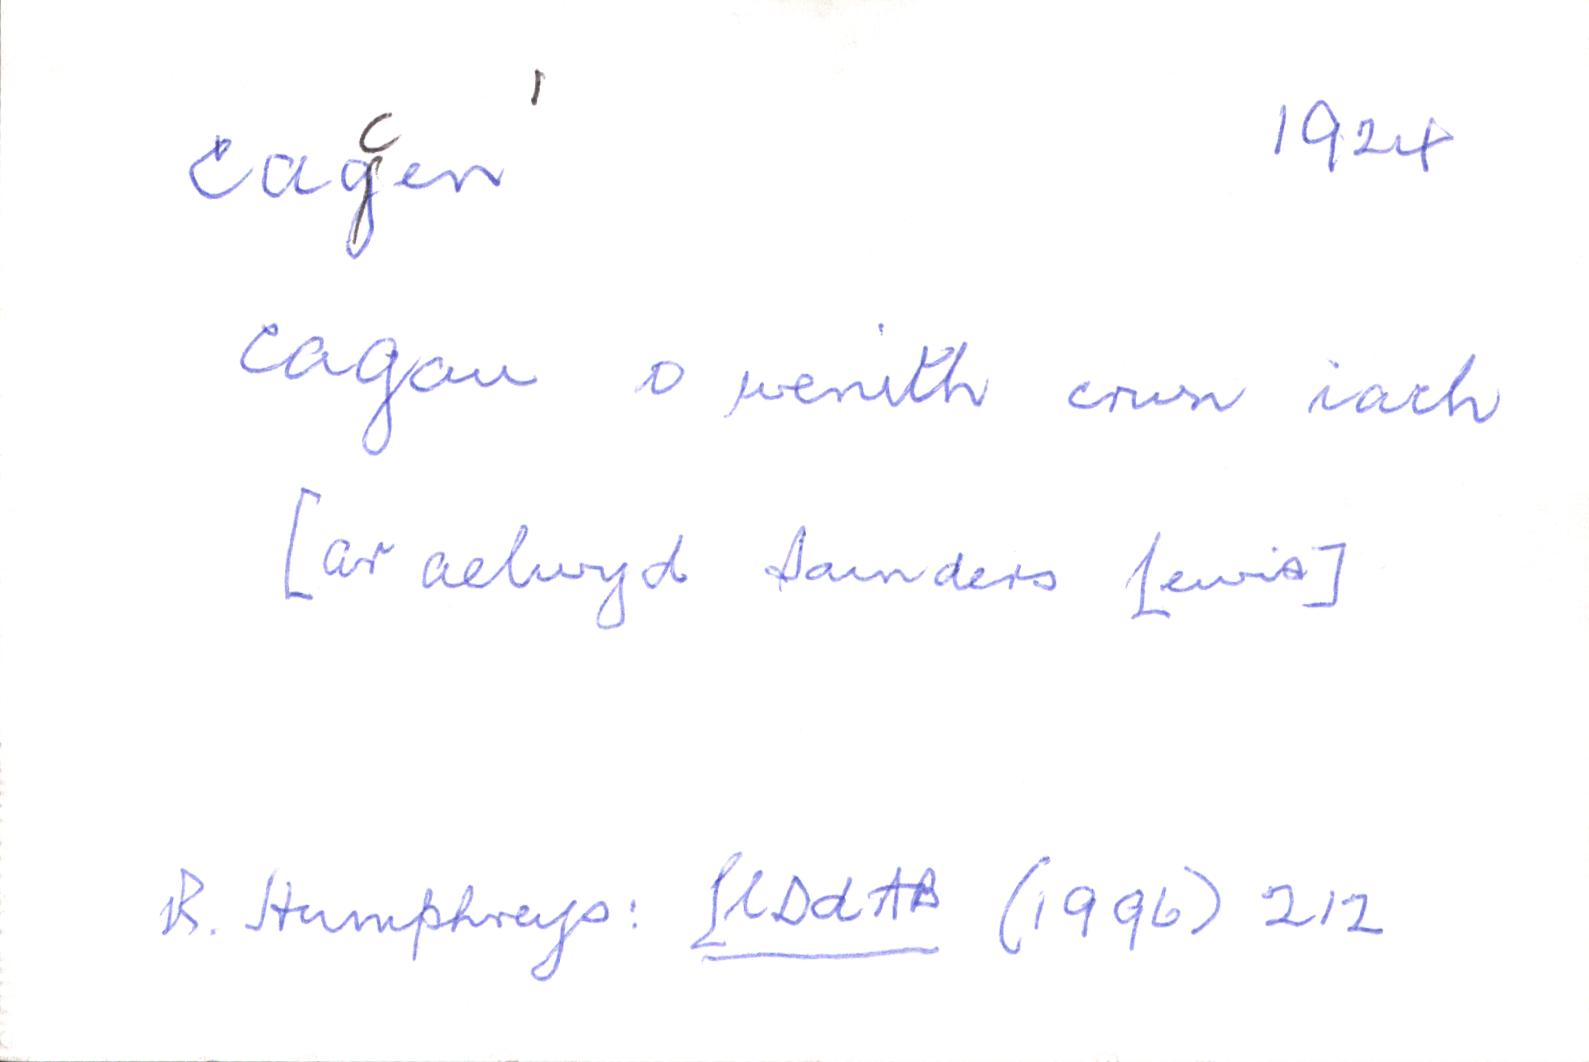 cagen 1 1924
cagau o wenith crwn iach
[ar aelwyd Saunders Lewis]
R. Humphreys: LlDdAB (1996) 212